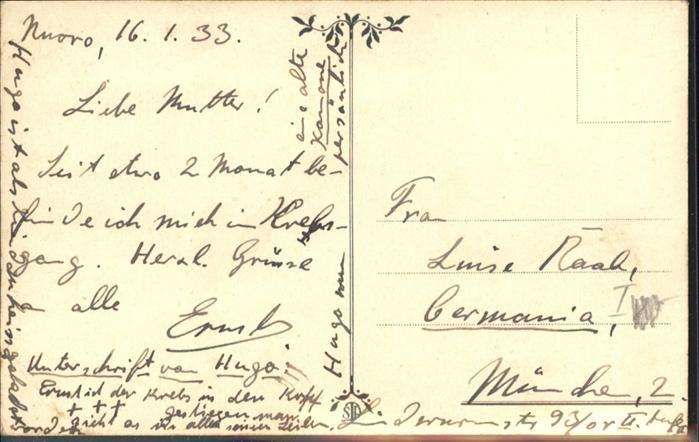 Nuoro, 16. 1. 33.
Liebe Mutter!
Seit etwa 2 Monat be-
finde ich mich im Krebs-
gang. Herzl. Grüsse
alle
Ernst
Unterschrift von Hugo:
Ernst ist der Krebs in den Kopf
gestiegen, man
sieht es in allen seinen Zeilen.
Hugo ist als
Hugo nun
eine alte
Kanone
persönlich
Frau
Luise Raab,
Germania, I
München, 2.
II.